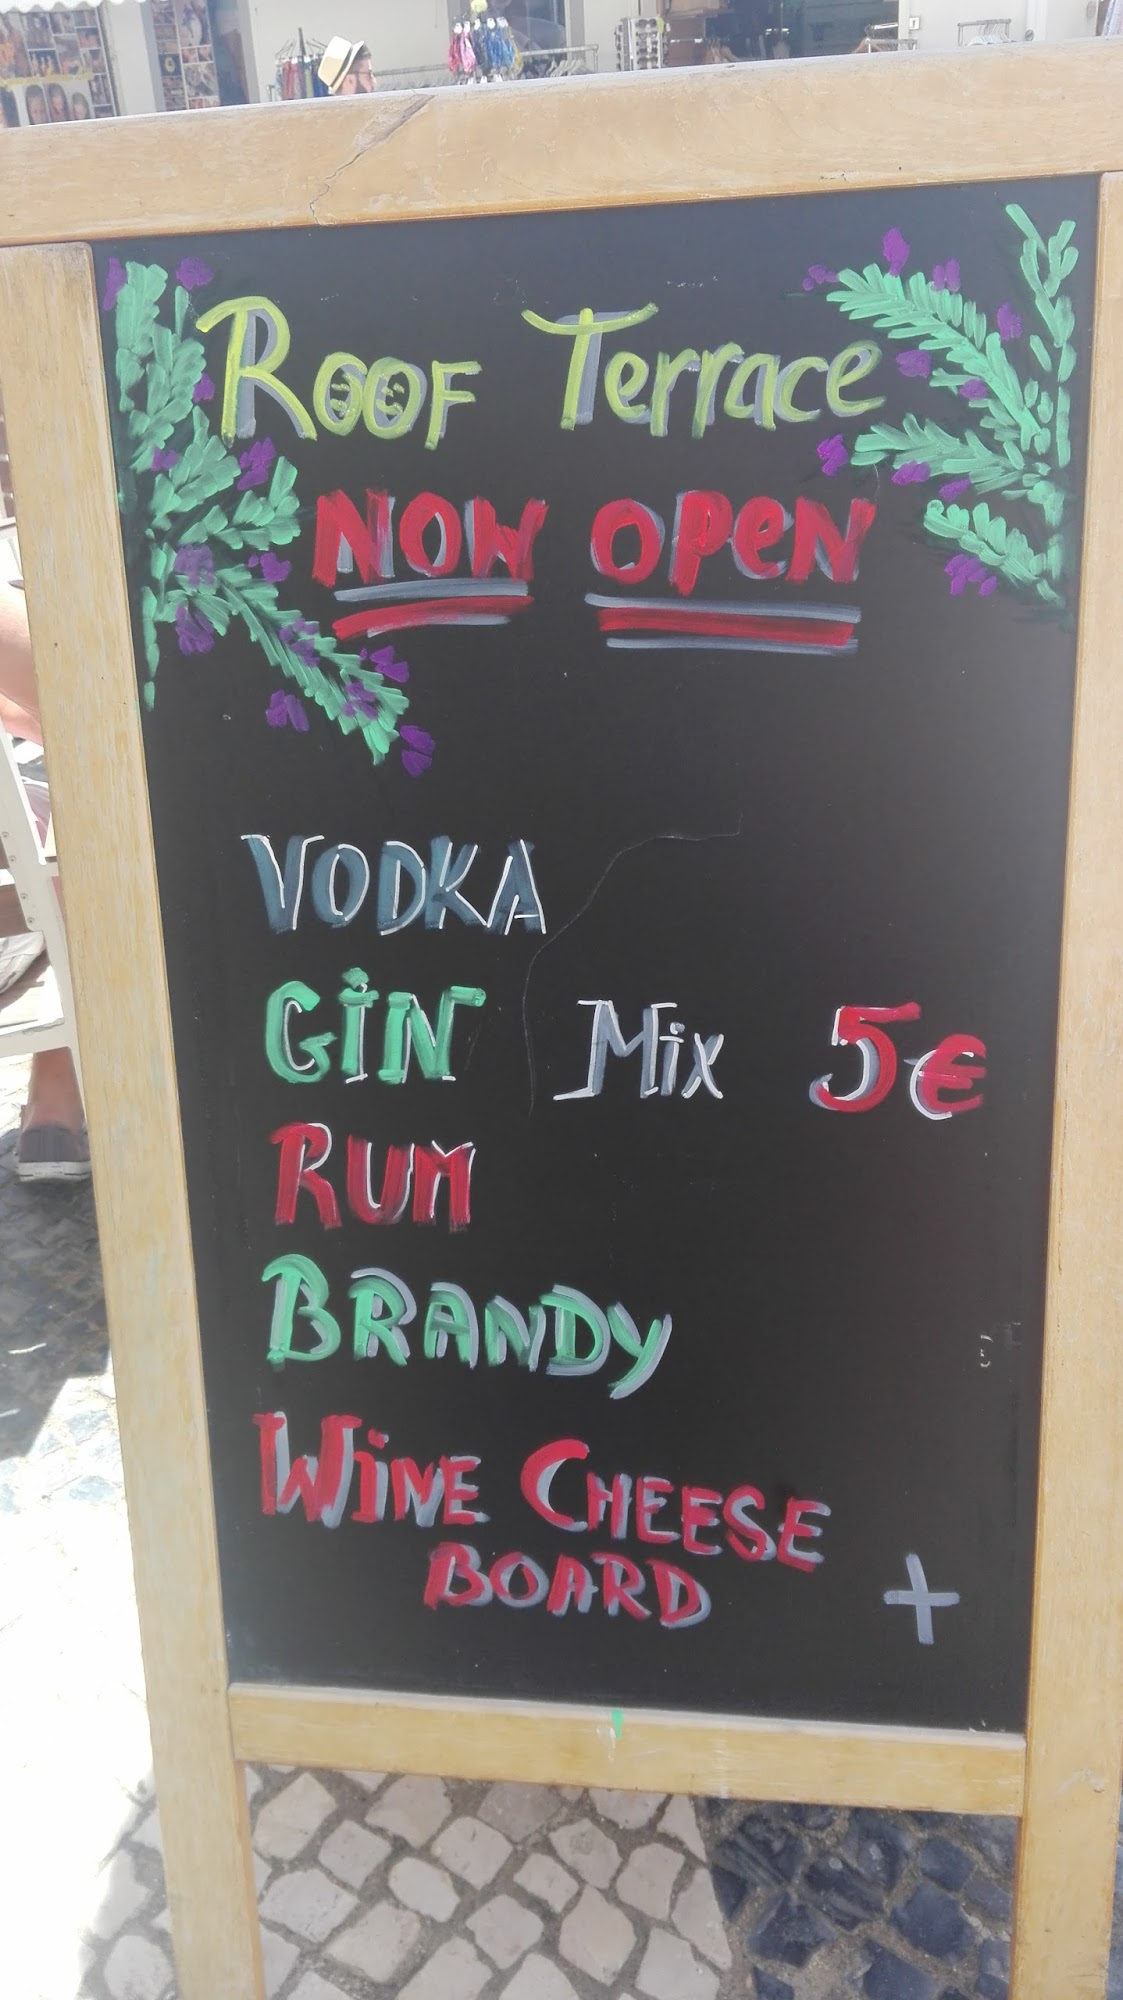 Roof Terrace
NOW OPEN
VODKA
GIN Mix 5€
RUM
BRANDY
WINE CHEESE
BOARD +